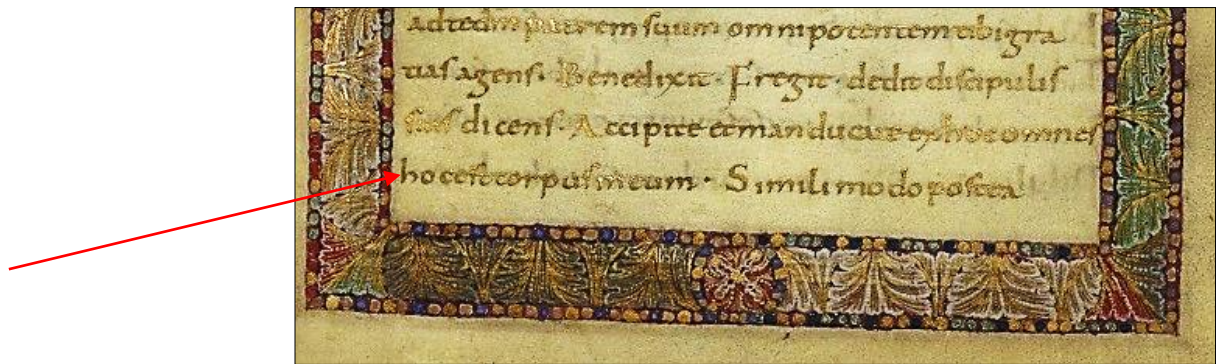 ad te dm patrem suum omnipotentem tibi gra
tias agens · Benedixit · Fregit · dedit discipulis
suis dicens · Accipite et manducate ex hoc omnes
hoc est corpus meum · Simili modo postea